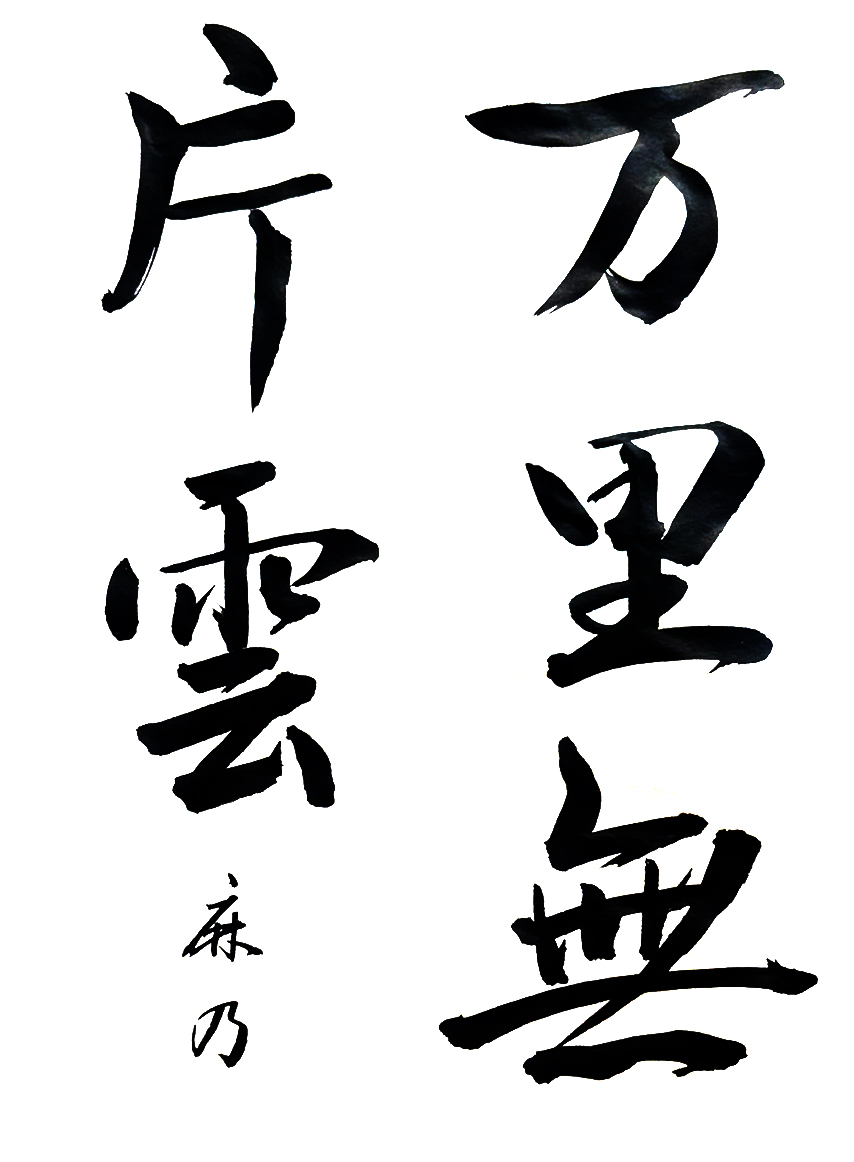 万里無
片雲
麻乃